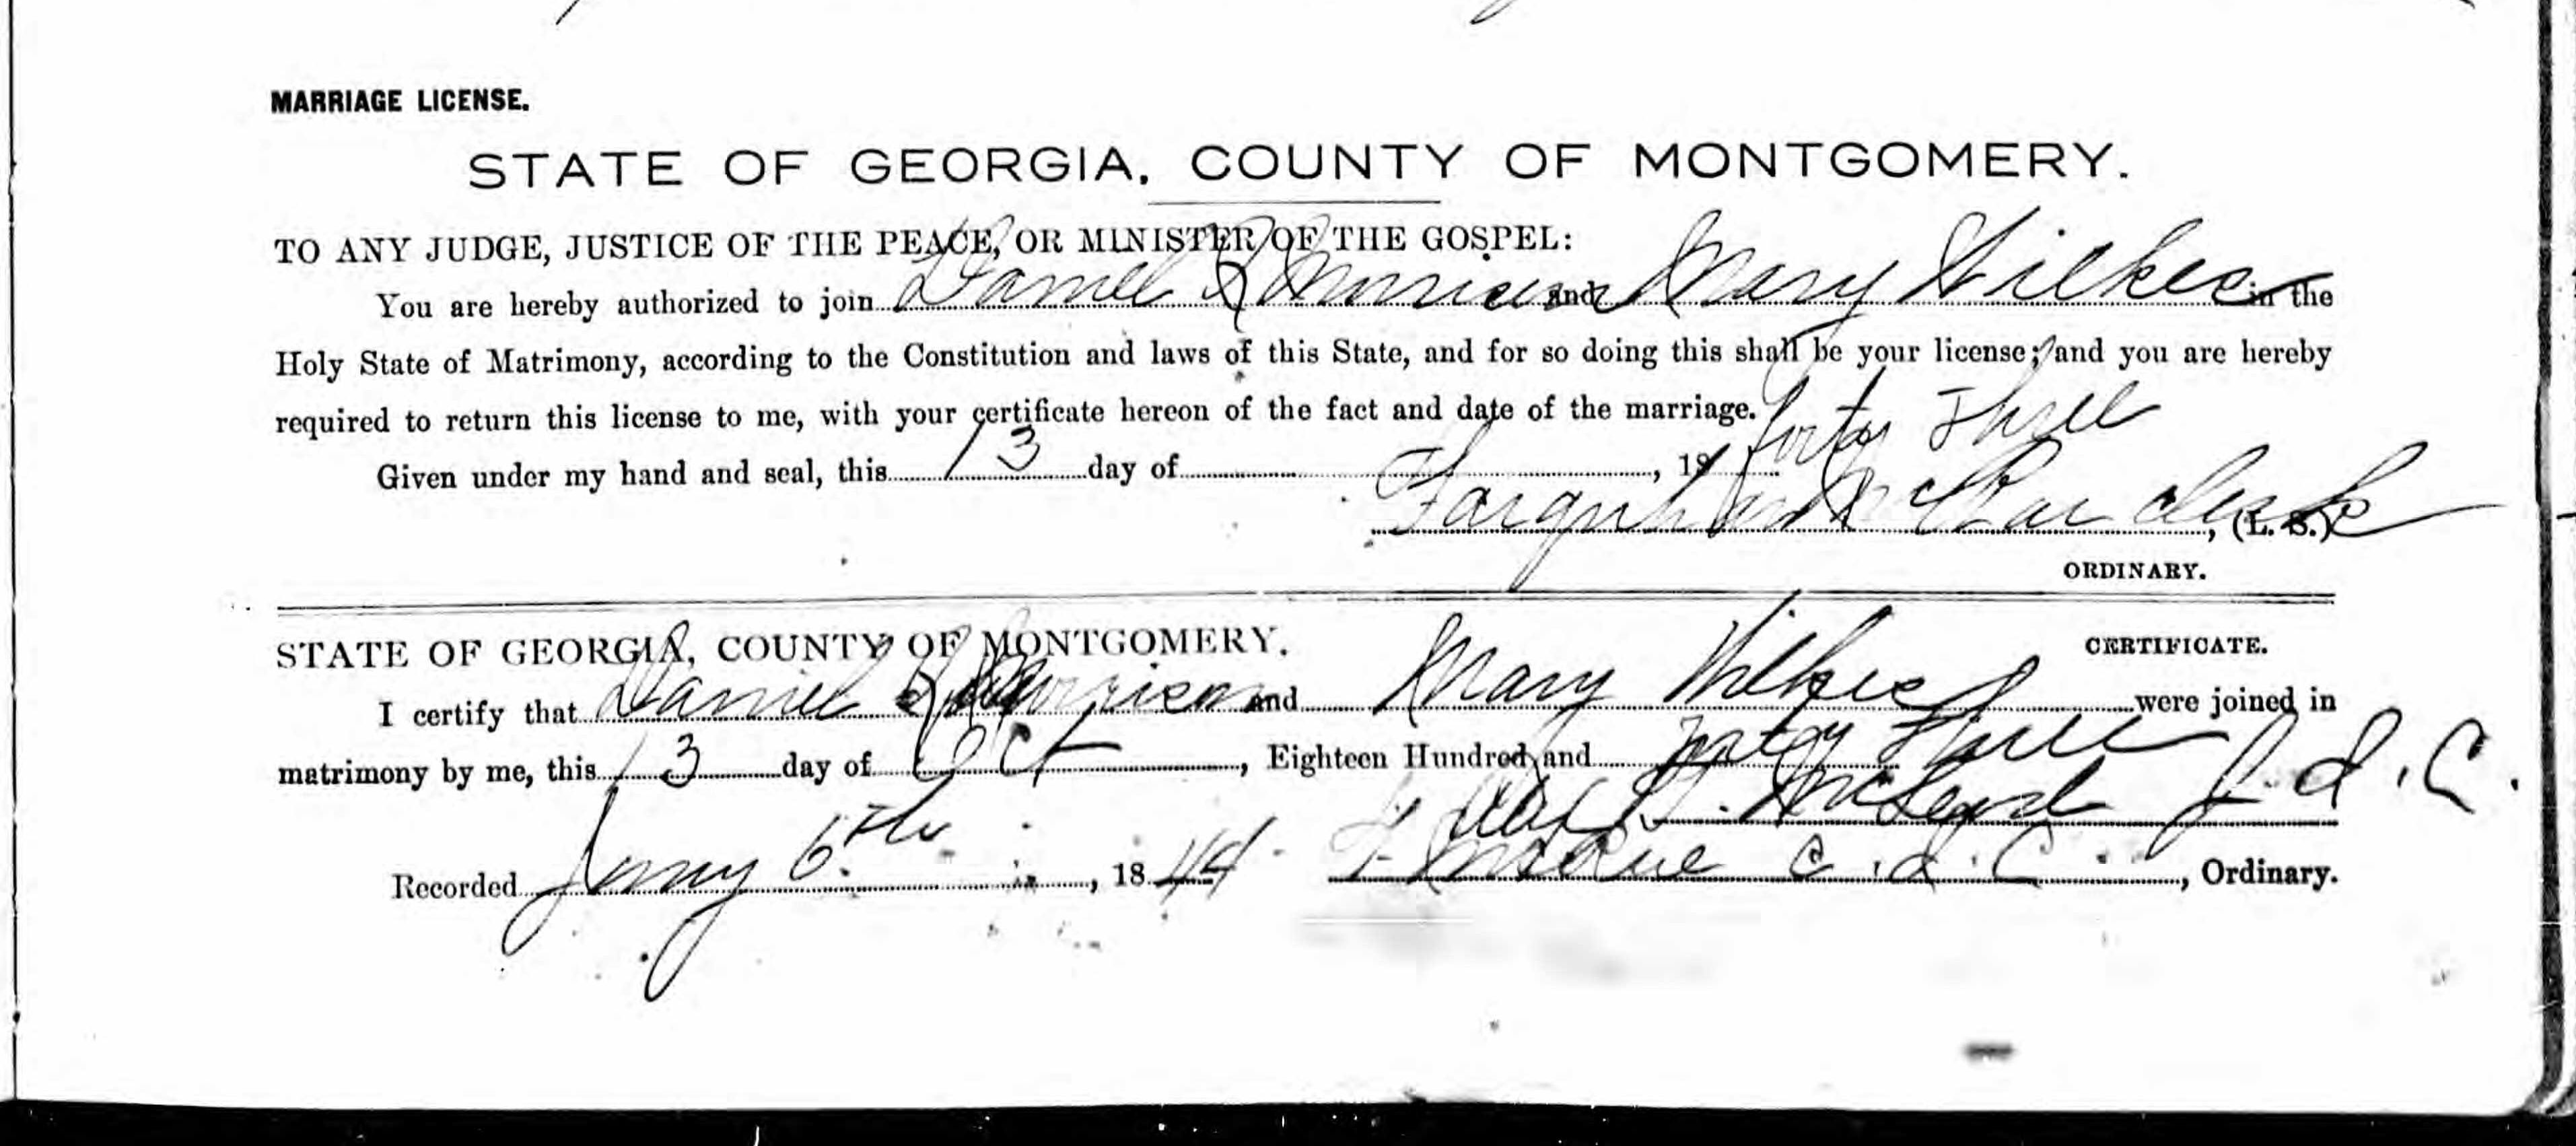 MARRIAGE LICENSE.
STATE OF GEORGIA, COUNTY OF MONTGOMERY.
TO ANY JUDGE, JUSTICE OF THE PEACE, OR MINISTER OF THE GOSPEL:
You are hereby authorized to join Daniel Morrison and Mary Wilkes in the
Holy State of Matrimony, according to the Constitution and laws of this State, and for so doing this shall be your license; and you are hereby
required to return this license to me, with your certificate hereon of the fact and date of the marriage.
forty Three
Given under my hand and seal, this 13 day of , 19
Farquhar McRae clerk, (L. S.)
ORDINARY.
STATE OF GEORGIA, COUNTY OF MONTGOMERY. CERTIFICATE.
I certify that Daniel Morrison and Mary Wilkes were joined in
matrimony by me, this 13 day of Oct, Eighteen Hundred and forty Three
McLeod J. I. C.
Recorded Jany 6th, 1844. F McRae C. I. C., Ordinary.